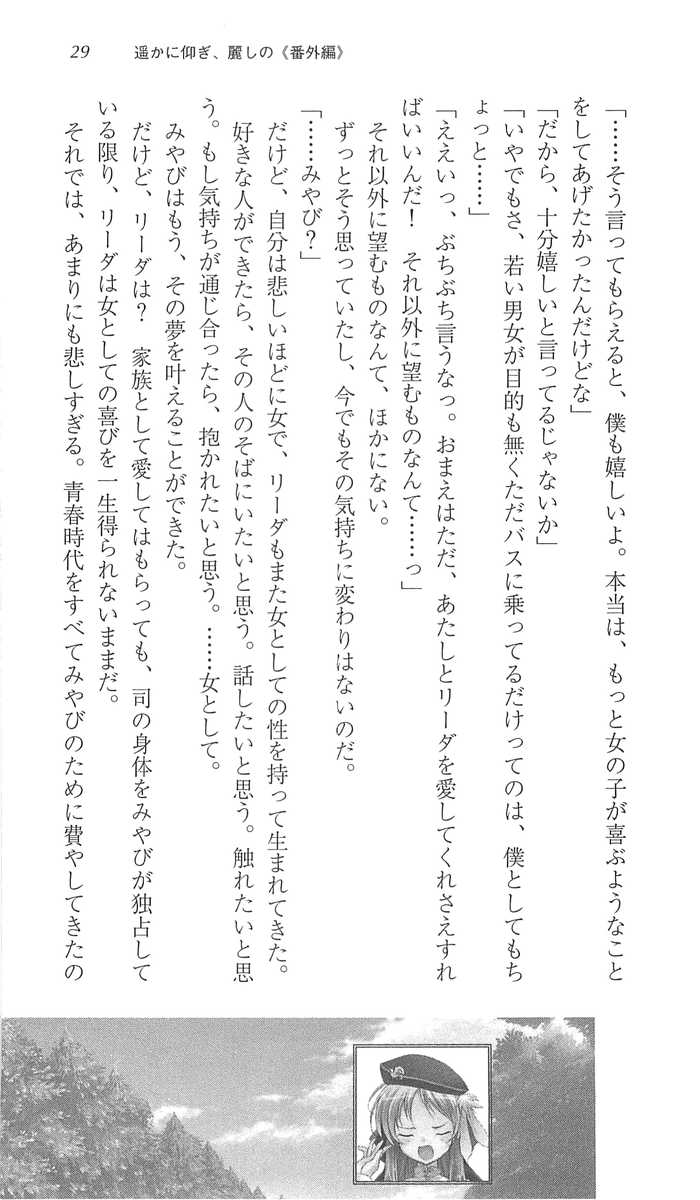 29　遥かに仰ぎ、麗しの《番外編》
「……そう言ってもらえると、僕も嬉しいよ。本当は、もっと女の子が喜ぶようなこと
をしてあげたかったんだけどな」
「だから、十分嬉しいと言ってるじゃないか」
「いやでもさ、若い男女が目的も無くただバスに乗ってるだけってのは、僕としてもち
ょっと……」
「ええいっ、ぶちぶち言うなっ。おまえはただ、あたしとリーダを愛してくれさえすれ
ばいいんだ！　それ以外に望むものなんて……っ」
それ以外に望むものなんて、ほかにない。
ずっとそう思っていたし、今でもその気持ちに変わりはないのだ。
「……みやび？」
だけど、自分は悲しいほどに女で、リーダもまた女としての性を持って生まれてきた。
好きな人ができたら、その人のそばにいたいと思う。話したいと思う。触れたいと思
う。もし気持ちが通じ合ったら、抱かれたいと思う。……女として。
みやびはもう、その夢を叶えることができた。
だけど、リーダは？　家族として愛してはもらっても、司の身体をみやびが独占して
いる限り、リーダは女としての喜びを一生得られないままだ。
それでは、あまりにも悲しすぎる。青春時代をすべてみやびのために費やしてきたの